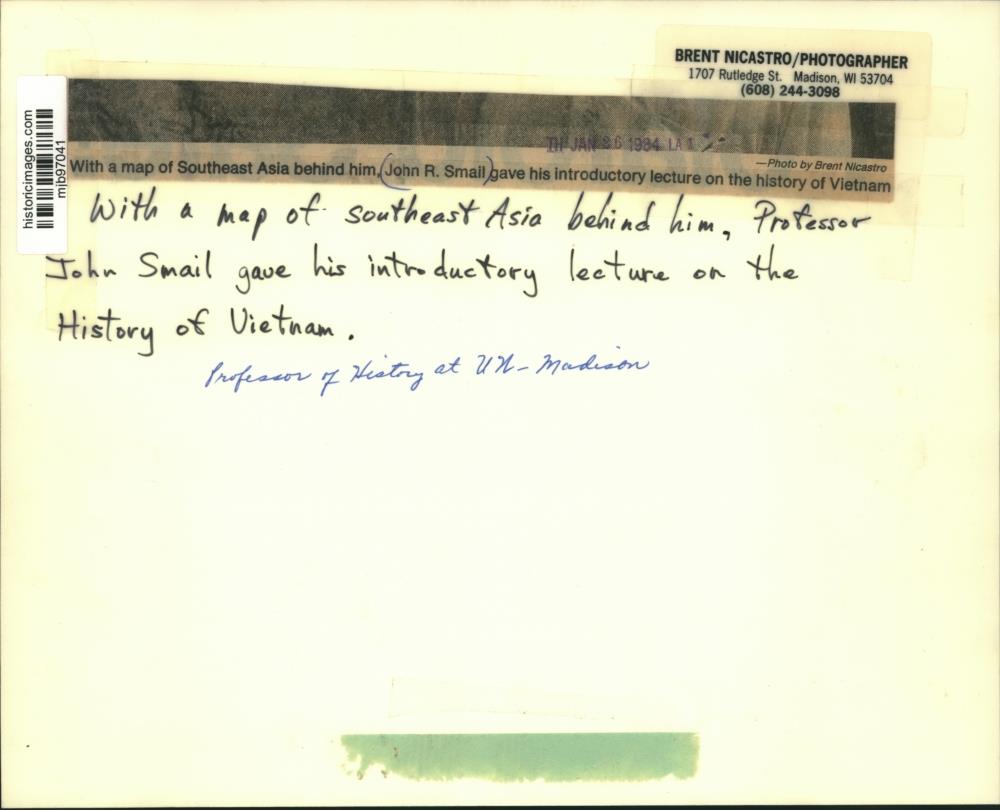 BRENT NICASTRO/PHOTOGRAPHER
1707 Rutledge St. Madison, WI 53704
(608) 244-3098
historicimages.com
mjb97041
JAN 26 1984
—Photo by Brent Nicastro
With a map of Southeast Asia behind him, (John R. Smail) gave his introductory lecture on the history of Vietnam
With a map of southeast Asia behind him, Professor
John Smail gave his introductory lecture on the
History of Vietnam.
Professor of History at UW-Madison